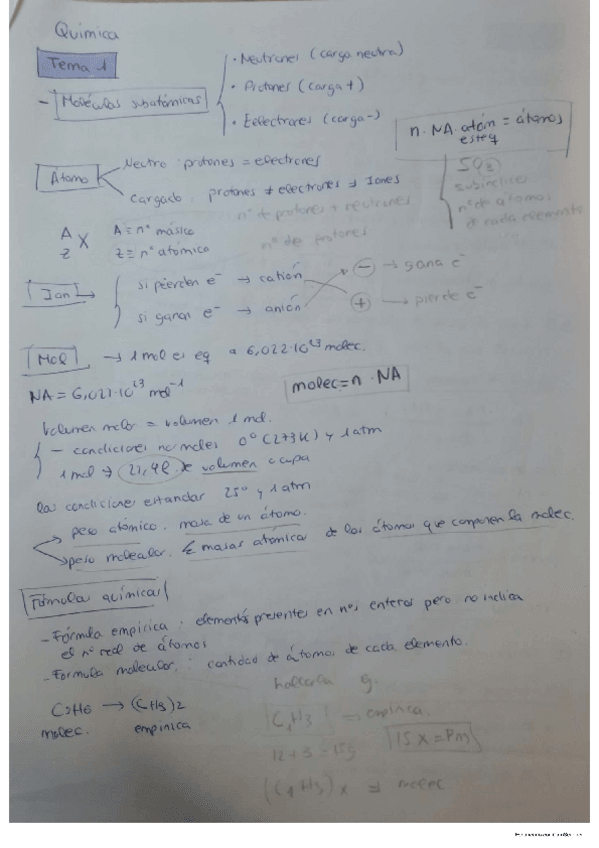 Química
Tema 1
- Moléculas subatómicas
· Neutrones (carga neutra)
· Protones (carga +)
· Eelectrones (carga -)
n · NA · atom = átomos
esteq
subíndice
nº de átomos
de cada elemento
Átomo
Neutro : protones = electrones
Cargado protones ≠ electrones ⇒ Iones
nº de protones + neutrones
A
Z X
A = nº másico
Z = nº atómico
nº de protones
Ion →
si pierden e⁻ → catión
si ganan e⁻ → anión
⊖ → gana e⁻
⊕ → pierde e⁻
Mol → 1 mol es eq a 6,022·10²³ molec.
NA = 6,022·10²³ mol⁻¹
molec = n · NA
Volumen molar = volumen 1 mol.
- condiciones normales 0º (273K) y 1 atm
1 mol → 22,4l de volumen ocupa
las condiciones estandar 25º y 1 atm
peso atómico. masa de un átomo.
peso molecular. Σ masas atómicas de los átomos que componen la molec.
Fórmulas químicas
- Fórmula empírica : elementos presentes en nos enteros pero no indica
el nº real de átomos
- Formula molecular. : cantidad de átomos de cada elemento.
hallarla g.
C2H6 → (CH3)2
molec. empírica
C1H3 → empírica
12 + 3 = 15g
15 x = Pm
(C1H3)x ⇒ molec